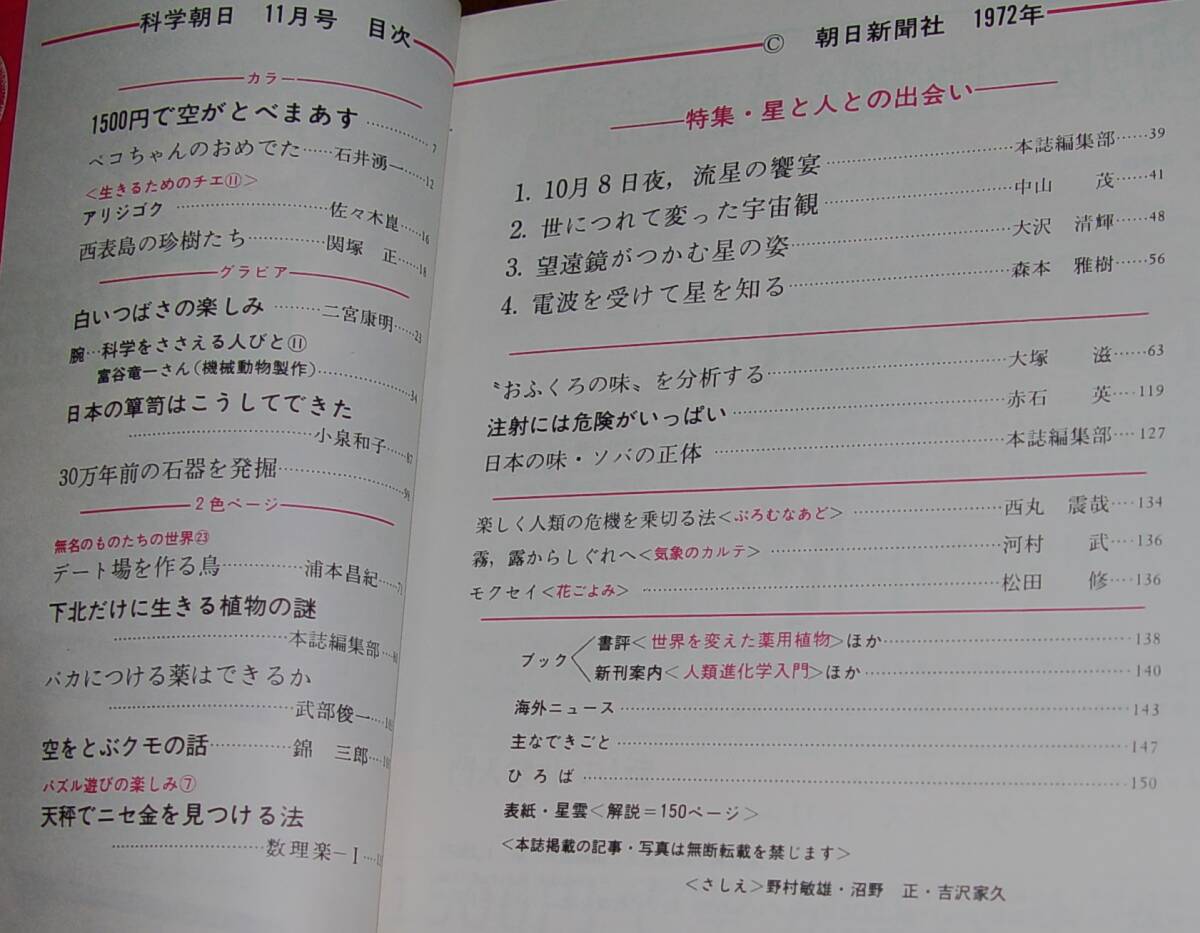 科学朝日 11月号 目次
カラー
1500円で空がとべまあす……7
ペコちゃんのおめでた……石井湧一……12
＜生きるためのチエ⑪＞
アリジゴク……佐々木崑……16
西表島の珍樹たち……関塚 正……18
グラビア
白いつばさの楽しみ……二宮康明……23
腕…科学をささえる人びと⑪
富谷竜一さん（機械動物製作）……34
日本の簞笥はこうしてできた
……小泉和子……87
30万年前の石器を発掘……
2色ページ
無名のものたちの世界㉓
デート場を作る鳥……浦本昌紀……71
下北だけに生きる植物の謎
……本誌編集部……
バカにつける薬はできるか
……武部俊一……
空をとぶクモの話……錦 三郎……
パズル遊びの楽しみ⑦
天秤でニセ金を見つける法
……数理楽－I……
© 朝日新聞社 1972年
特集・星と人との出会い
1. 10月8日夜，流星の饗宴……本誌編集部……39
2. 世につれて変った宇宙観……中山 茂……41
3. 望遠鏡がつかむ星の姿……大沢 清輝……48
4. 電波を受けて星を知る……森本 雅樹……56
〝おふくろの味〟を分析する……大塚 滋……63
注射には危険がいっぱい……赤石 英……119
日本の味・ソバの正体……本誌編集部……127
楽しく人類の危機を乗切る法＜ぷろむなあど＞……西丸 震哉……134
霧，露からしぐれへ＜気象のカルテ＞……河村 武……136
モクセイ＜花ごよみ＞……松田 修……136
ブック＜書評＜世界を変えた薬用植物＞ほか……138
新刊案内＜人類進化学入門＞ほか……140
海外ニュース……143
主なできごと……147
ひろば……150
表紙・星雲＜解説＝150ページ＞
＜本誌掲載の記事・写真は無断転載を禁じます＞
＜さしえ＞野村敏雄・沼野 正・吉沢家久